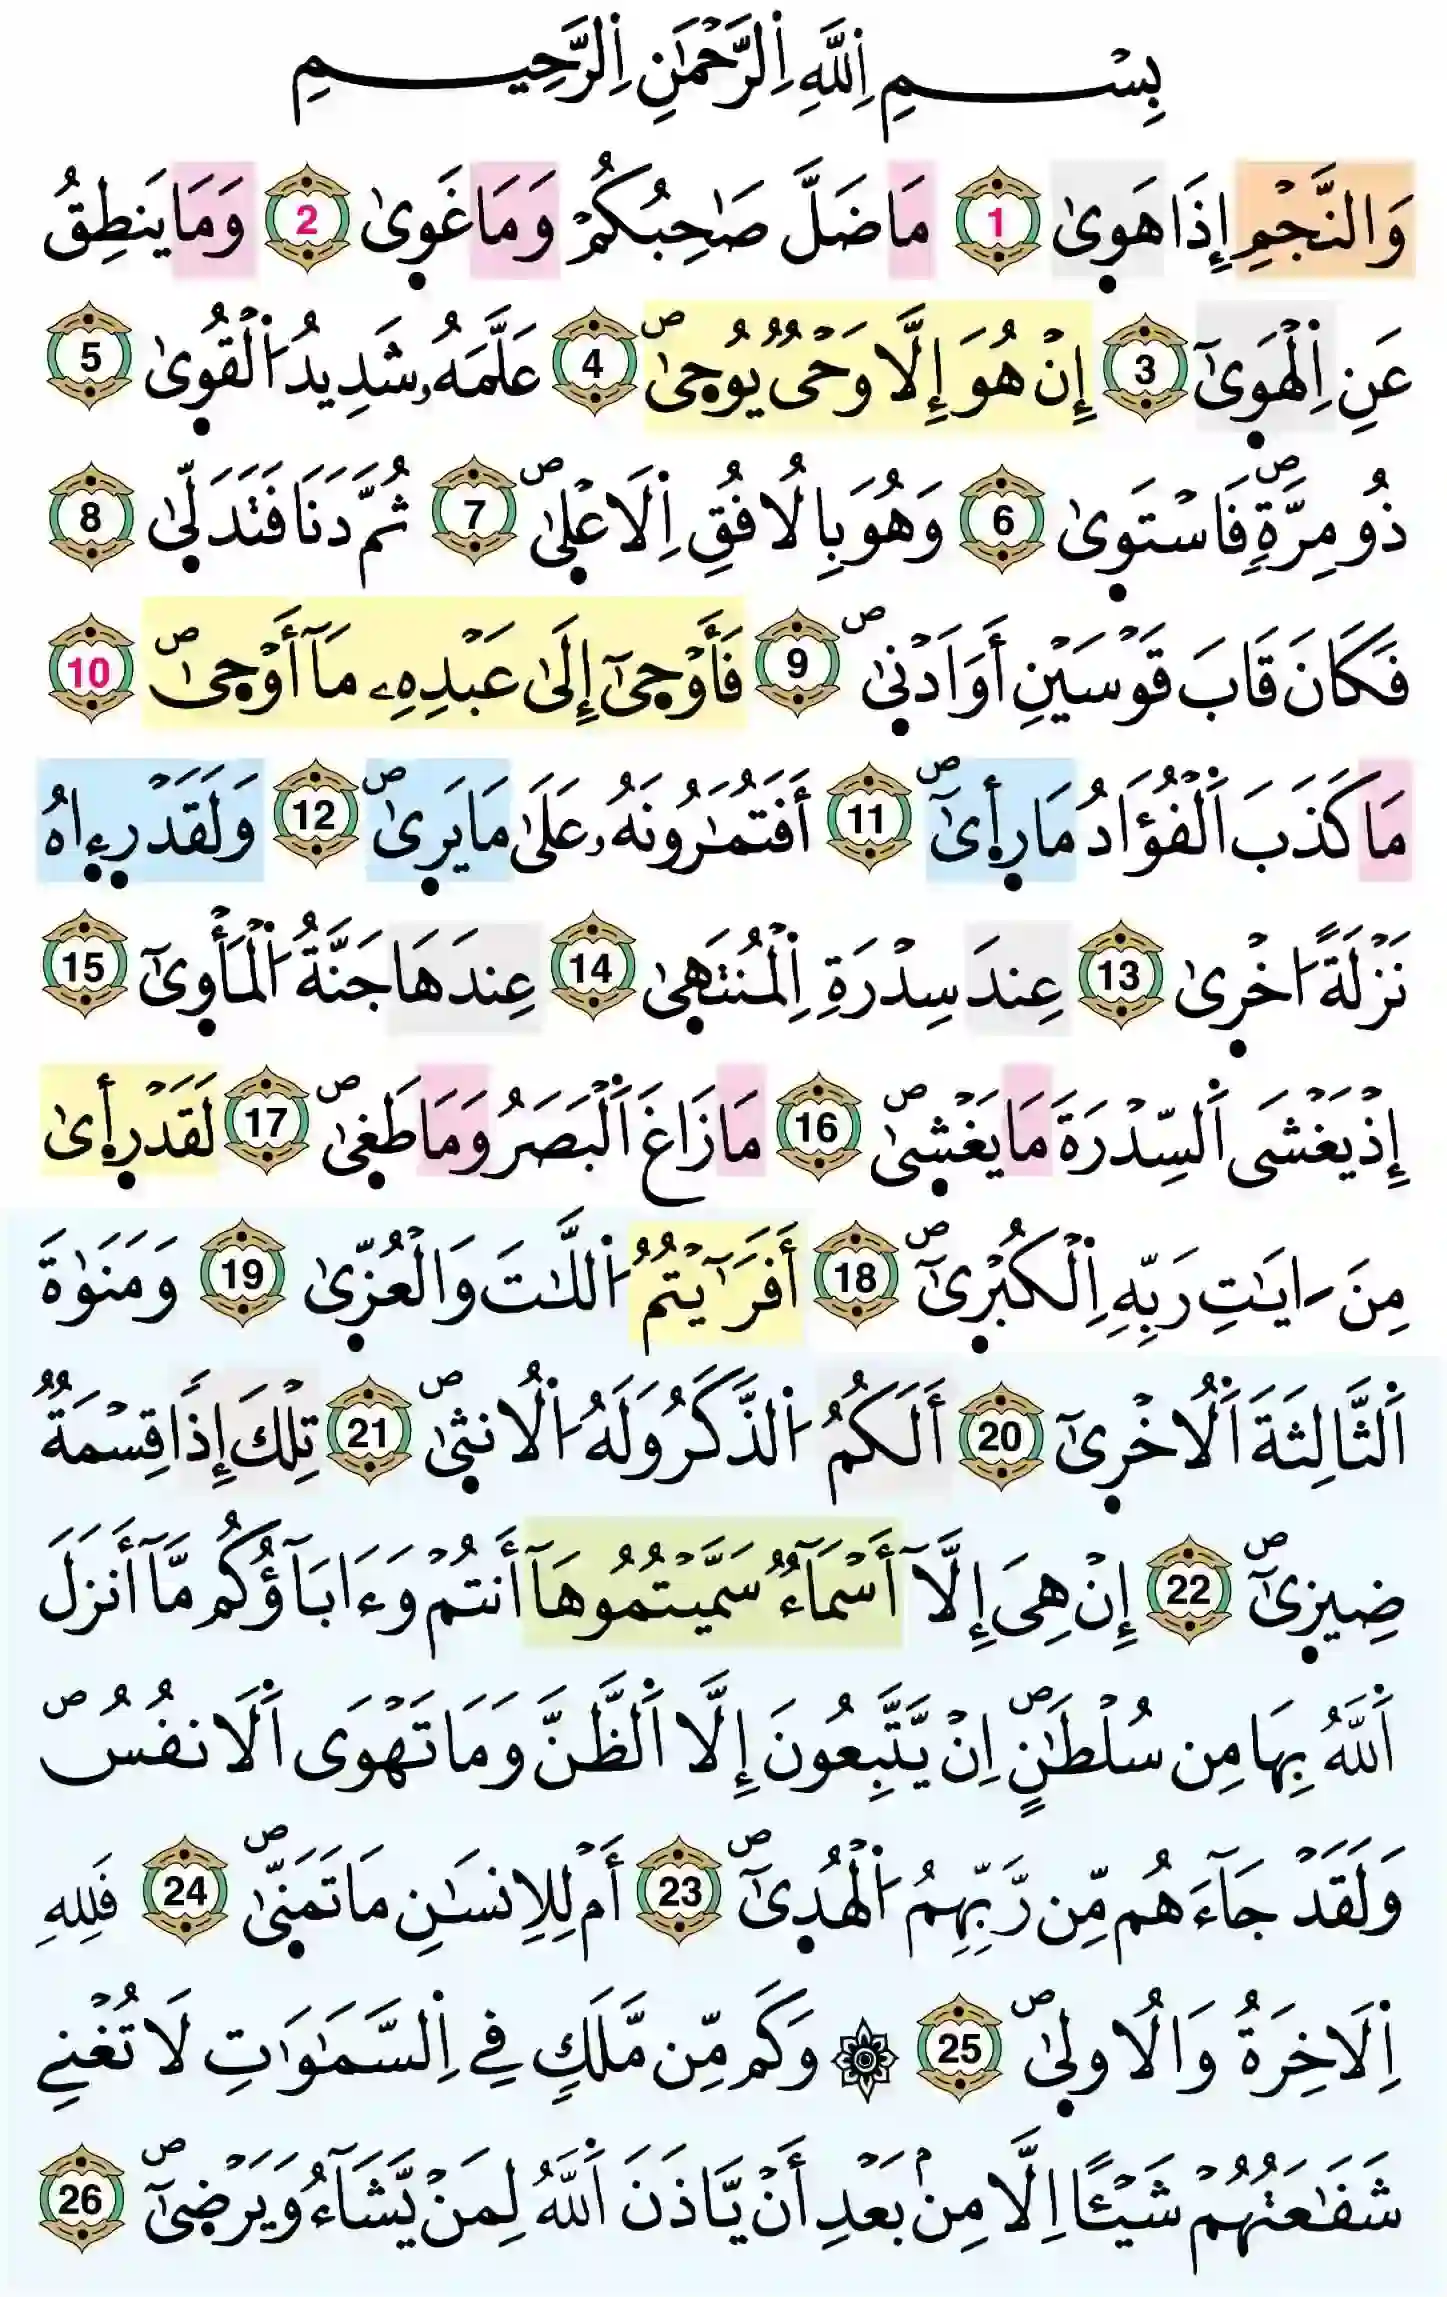 بِسْمِ اِ۬للَّهِ اِ۬لرَّحْمَٰنِ اِ۬لرَّحِيمِ
وَالنَّجْمِ إِذَا هَو۪يٰ 1 مَا ضَلَّ صَٰحِبُكُمْ وَمَا غَو۪يٰ 2 وَمَا يَنطِقُ
عَنِ اِ۬لْهَو۪يٰٓ 3 إِنْ هُوَ إِلَّا وَحْيٞ يُوح۪يٰۖ 4 عَلَّمَهُۥ شَدِيدُ اُ۬لْقُو۪يٰ 5
ذُو مِرَّةٖۖ فَاسْتَو۪يٰ 6 وَهُوَ بِالُافُقِ اِ۬لَاعْل۪يٰۖ 7 ثُمَّ دَنَا فَتَدَلّ۪يٰ 8
فَكَانَ قَابَ قَوْسَيْنِ أَوَ اَدْن۪يٰۖ 9 فَأَوْح۪يٰٓ إِلَىٰ عَبْدِهِۦ مَآ أَوْح۪يٰۖ 10
مَا كَذَبَ اَ۬لْفُؤَادُ مَا ر۪أ۪يٰٓۖ 11 أَفَتُمَٰرُونَهُۥ عَلَىٰ مَا يَر۪يٰۖ 12 وَلَقَدْ ر۪ء۪اهُ
نَزْلَةً ا۟خْر۪يٰ 13 عِندَ سِدْرَةِ اِ۬لْمُنتَه۪يٰ 14 عِندَهَا جَنَّةُ اُ۬لْمَأْو۪يٰٓ 15
إِذْ يَغْشَى اَ۬لسِّدْرَةَ مَا يَغْش۪يٰۖ 16 مَا زَاغَ اَ۬لْبَصَرُ وَمَا طَغ۪يٰۖ 17 لَقَدْ ر۪أ۪يٰ
مِنَ اٰيَٰتِ رَبِّهِ اِ۬لْكُبْر۪يٰٓۖ 18 أَفَرَٰٓيْتُمُ اُ۬للَّٰتَ وَالْعُزّ۪يٰ 19 وَمَنَوٰةَ
اَ۬لثَّالِثَةَ اَ۬لُاخْر۪يٰٓ 20 أَلَكُمُ اُ۬لذَّكَرُ وَلَهُ اُ۬لُانث۪يٰۖ 21 تِلْكَ إِذاٗ قِسْمَةٞ
ضِيز۪يٰٓۖ 22 إِنْ هِيَ إِلَّآ أَسْمَآءٞ سَمَّيْتُمُوهَآ أَنتُمْ وَءَابَآؤُكُم مَّآ أَنزَلَ
اَ۬للَّهُ بِهَا مِن سُلْطَٰنٍۖ اِنْ يَّتَّبِعُونَ إِلَّا اَ۬لظَّنَّ وَمَا تَهْوَى اَ۬لَانفُسُۖ
وَلَقَدْ جَآءَهُم مِّن رَّبِّهِمُ اُ۬لْهُد۪يٰٓۖ 23 أَمْ لِلِانسَٰنِ مَا تَمَنّ۪يٰۖ 24 فَلِلهِ
اِ۬لَاخِرَةُ وَالُاول۪يٰۖ 25 ۞ وَكَم مِّن مَّلَكٖ فِے اِ۬لسَّمَٰوَٰتِ لَا تُغْنِے
شَفَٰعَتُهُمْ شَيْـًٔا اِلَّا مِنۢ بَعْدِ أَنْ يَّاذَنَ اَ۬للَّهُ لِمَنْ يَّشَآءُ وَيَرْض۪يٰٓۖ 26